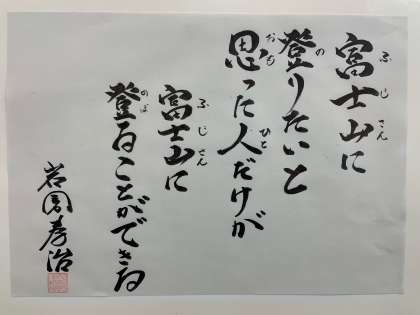 富士山に
登りたいと
思った人だけが
富士山に
登ることができる
岩図孝治